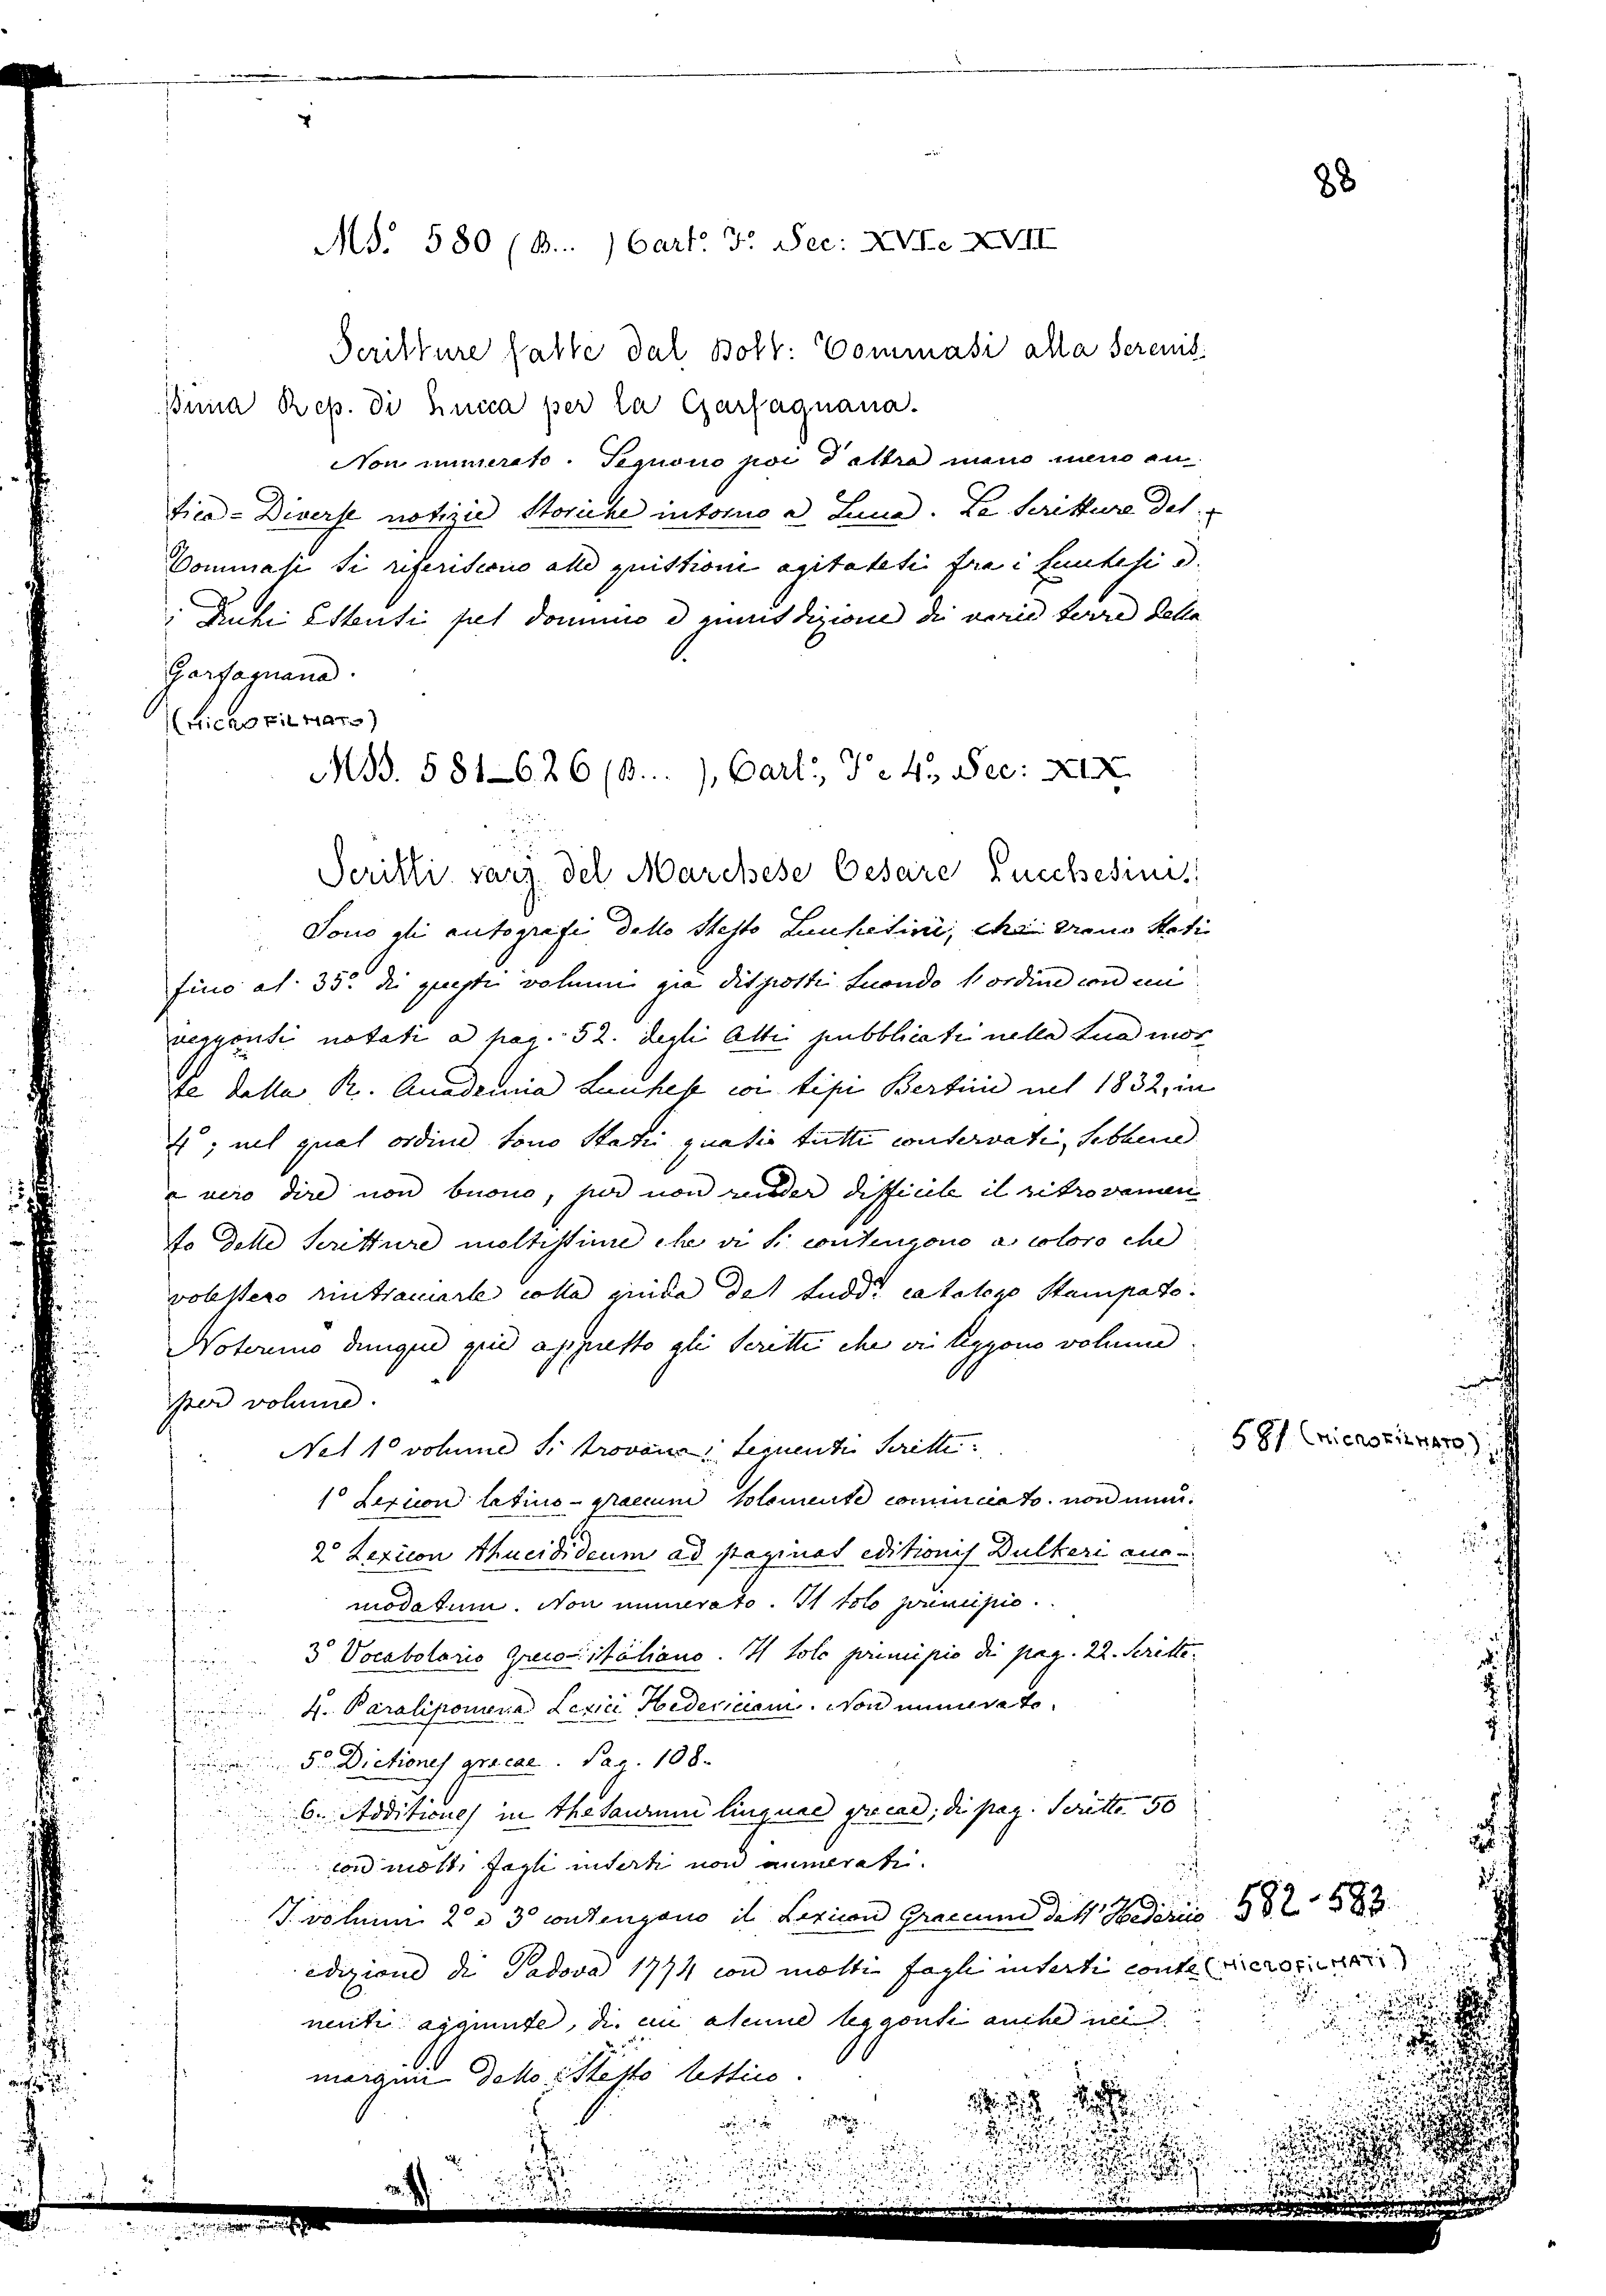 88
MS. 580 (B... ) Cart. F. Sec: XVI e XVII
Scritture fatte dal Dott: Tommasi alla Serenis-
sima Rep. di Lucca per la Garfagnana.
Non numerato. Seguono poi d'altra mano meno an-
tica = Diverse notizie Storiche intorno a Lucca. Le Scritture del
Tommasi si riferiscono alle quistioni agitatesi fra i Lucchesi e
i Duchi Estensi pel dominio e giurisdizione di varie terre della
Garfagnana.
(MICROFILMATO)
MSS. 581-626 (B... ), Cart:, F. e 4°, Sec: XIX.
Scritti varj del Marchese Cesare Lucchesini.
Sono gli autografi dello Stesso Lucchesini, che erano Stati
fino al 35° di questi volumi già disposti secondo l'ordine con cui
veggonsi notati a pag. 52. degli Atti pubblicati nella sua mor-
te dalla R. Accademia Lucchese coi tipi Bertini nel 1832, in
4°; nel qual ordine sono Stati quasi tutti conservati, Sebbene
a vero dire non buono, per non render difficile il ritrovamen-
to delle Scritture moltissime che vi si contengono a coloro che
volessero rintracciarle colla guida del sudd.° catalogo Stampato.
Noteremo dunque qui appresso gli Scritti che vi leggono volume
per volume.
Nel 1° volume si trovano i seguenti Scritti:
581 (MICROFILMATO)
1° Lexicon latino-graecum solamente cominciato. non num.
2° Lexicon Thucidideum ad paginas editionis Dukeri acco-
modatum. Non numerato. Il solo principio.
3° Vocabolario Greco-italiano. Il solo principio di pag. 22. Scritte.
4. Paralipomena Lexici Hedericiani. Non numerato.
5° Dictiones grecae. Pag. 108.
6. Additiones in Thesaurum linguae grecae; di pag. Scritte 50
con molti fogli inserti non numerati.
I volumi 2° e 3° contengono il Lexicon Graecum dell'Hederico
582-583
edizione di Padova 1774 con molti fogli inserti conte-
(MICROFILMATI)
nenti aggiunte, di cui alcune leggonsi anche nei
margini dello Stesso lessico.